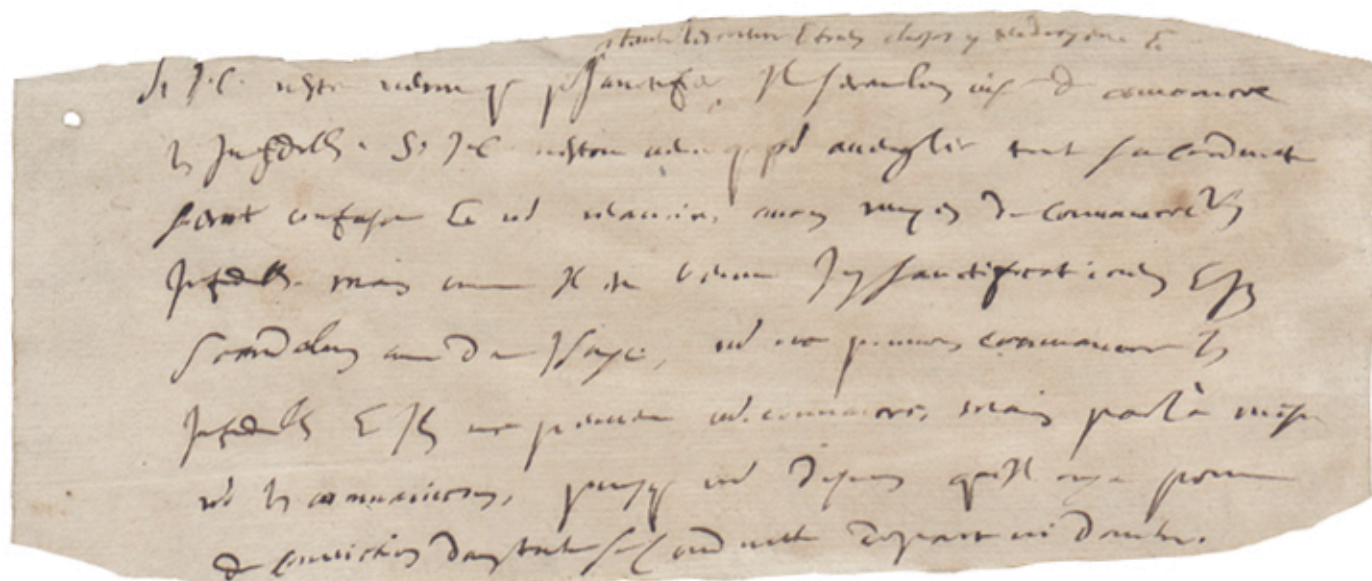 toute l'ecriture & toutes choses y tendroyent &
Si J.C. n'estoit venu que pr sanctifier, Il seroit bien aisé de convaincre
les Infidelles. Si J.C. n'estoit venu que pr aveugler toute sa conduitte
seroit confuse & ns n'aurions aucun moyen de convaincre les
Infidelles. mais comme Il est venu In sanctificationem & In
scandalum comme dit Isaye, ns ne pouvons convaincre les
Infidelles & Ils ne peuvent ns convaincre, mais par là mesme
ns les convainquons, puisque ns disons qu'Il n'y a point
de conviction dans toute sa conduitte de part ni d'autre.